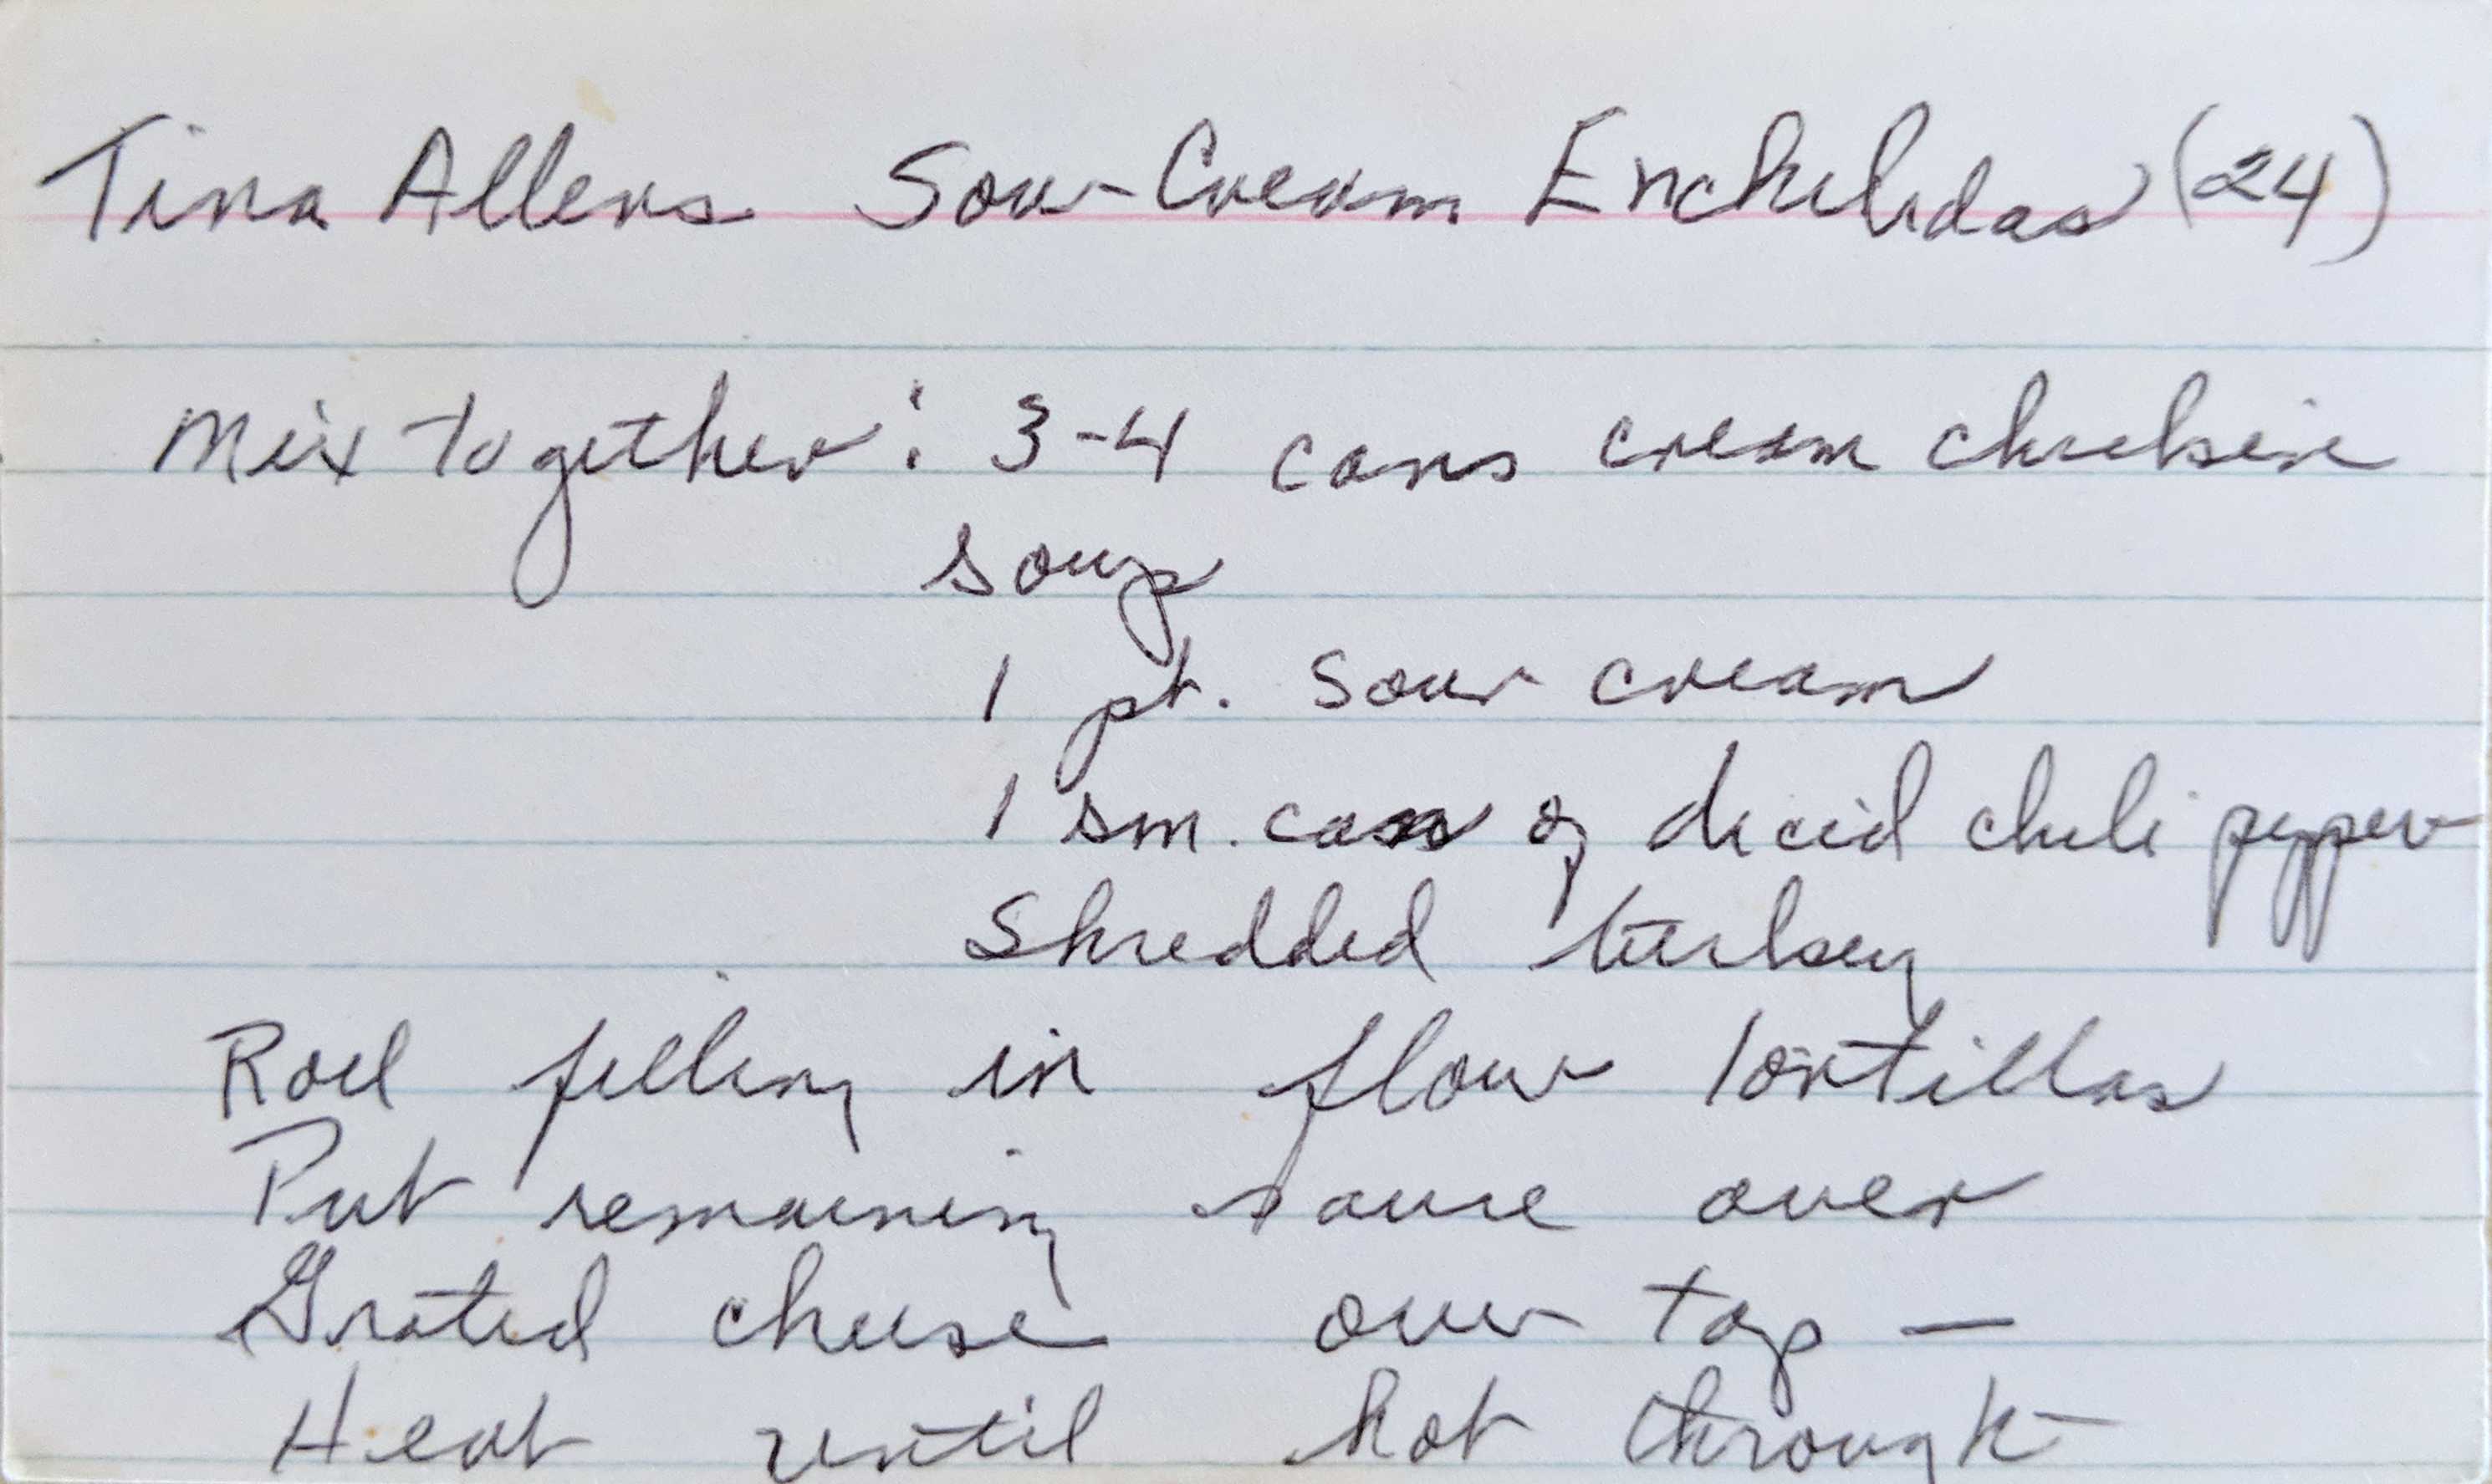 Tina Allens Sour Cream Enchiladas (24)
Mix together: 3-4 cans cream chicken
soup
1 pt. sour cream
1 sm. can of diced chili pepper
Shredded turkey
Roll filling in flour tortillas
Put remaining sauce over
Grated cheese over top —
Heat until hot through